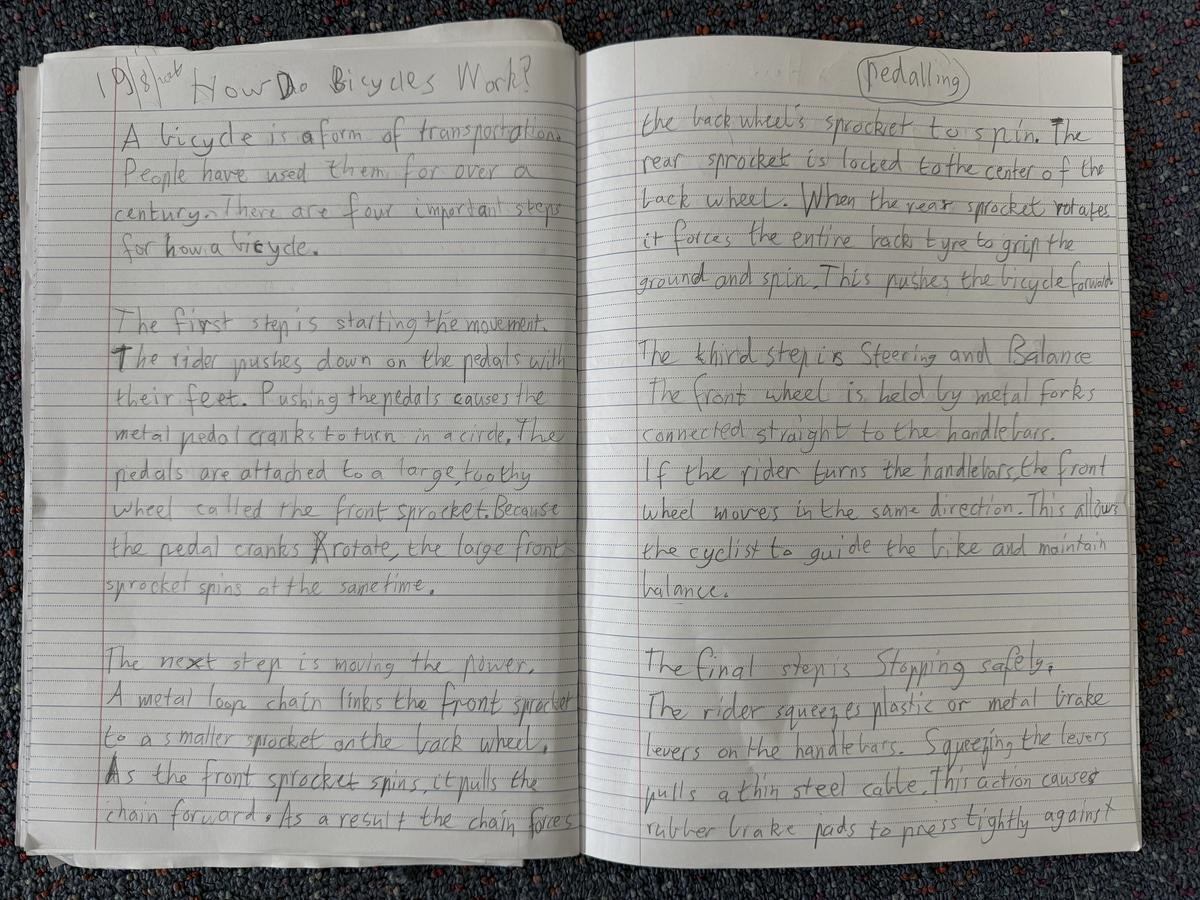 19/8/
How Do Bicycles Work?
A bicycle is a form of transportation.
People have used them for over a
century. There are four important steps
for how a bicycle.
The first step is starting the movement.
The rider pushes down on the pedals with
their feet. Pushing the pedals causes the
metal pedal cranks to turn in a circle. The
pedals are attached to a large, toothy
wheel called the front sprocket. Because
the pedal cranks rotate, the large front
sprocket spins at the same time.
The next step is moving the power.
A metal loop chain links the front sprocket
to a smaller sprocket on the back wheel.
As the front sprocket spins, it pulls the
chain forward. As a result the chain forces
pedalling
the back wheel's sprocket to spin. The
rear sprocket is locked to the center of the
back wheel. When the rear sprocket rotates
it forces the entire back tyre to grip the
ground and spin. This pushes the bicycle forward
The third step is Steering and Balance
The front wheel is held by metal forks
connected straight to the handlebars.
If the rider turns the handlebars, the front
wheel moves in the same direction. This allows
the cyclist to guide the bike and maintain
balance.
The final step is Stopping safely.
The rider squeezes plastic or metal brake
levers on the handlebars. Squeezing the levers
pulls a thin steel cable. This action causes
rubber brake pads to press tightly against